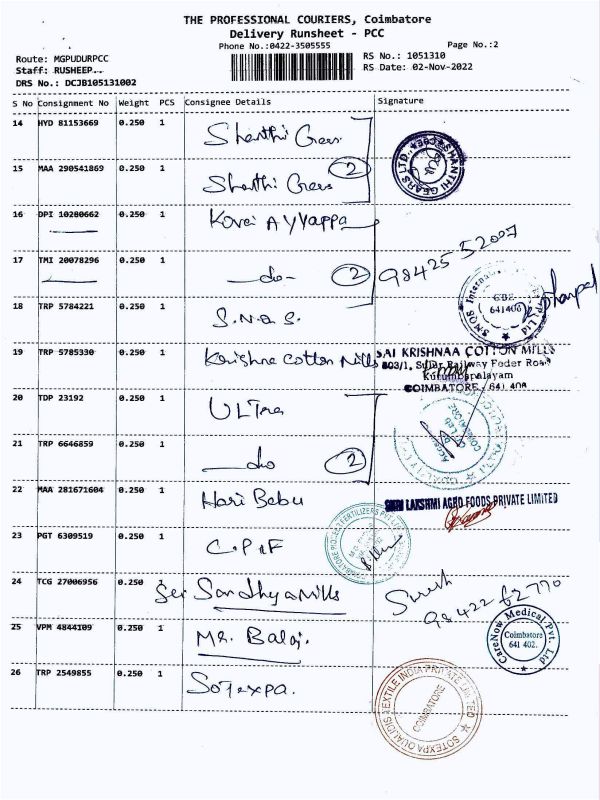 THE PROFESSIONAL COURIERS, Coimbatore
Delivery Runsheet - PCC
Phone No.:0422-3505555 Page No.:2
Route: MGPUDURPCC RS No.: 1051310
Staff: RUSHEEP.. RS Date: 02-Nov-2022
DRS No.: DCJB105131002
S No Consignment No Weight PCS Consignee Details Signature
14 HYD 81153669 0.250 1 Shanthi Gears
SHANTHI GEARS LTD.
15 MAA 290541869 0.250 1 Shanthi Gears 2
16 DPI 10280662 0.250 1 Kovai Ayyappa
17 TMI 20078296 0.250 1 do 2 98425 52007
18 TRP 5784221 0.250 1 S.N.Q.S.
SNQS International Pvt Ltd
CBE
641406
19 TRP 5785330 0.250 1 Krishna Cotton Mills SAI KRISHNAA COTTON MILLS
Railway Feder Road
Kurumbapalayam
COIMBATORE - 641 408
20 TDP 23192 0.250 1 ULTra
21 TRP 6646859 0.250 1 do 2
22 MAA 281671604 0.250 1 Hari Babu
SHRI LAKSHMI AGRO FOODS PRIVATE LIMITED
23 PGT 6309519 0.250 1 C.P.F
24 TCG 27006956 0.250 Sri Sandhya Mills Suresh
98422 62770
25 VPM 4844109 0.250 1 Mr. Balaji.
CareNow Medical Pvt. Ltd
Coimbatore
641 402.
26 TRP 2549855 0.250 1 Sotexpa.
SOTEXPA QUALIDIS TEXTILE INDIA PRIVATE LIMITED
COIMBATORE